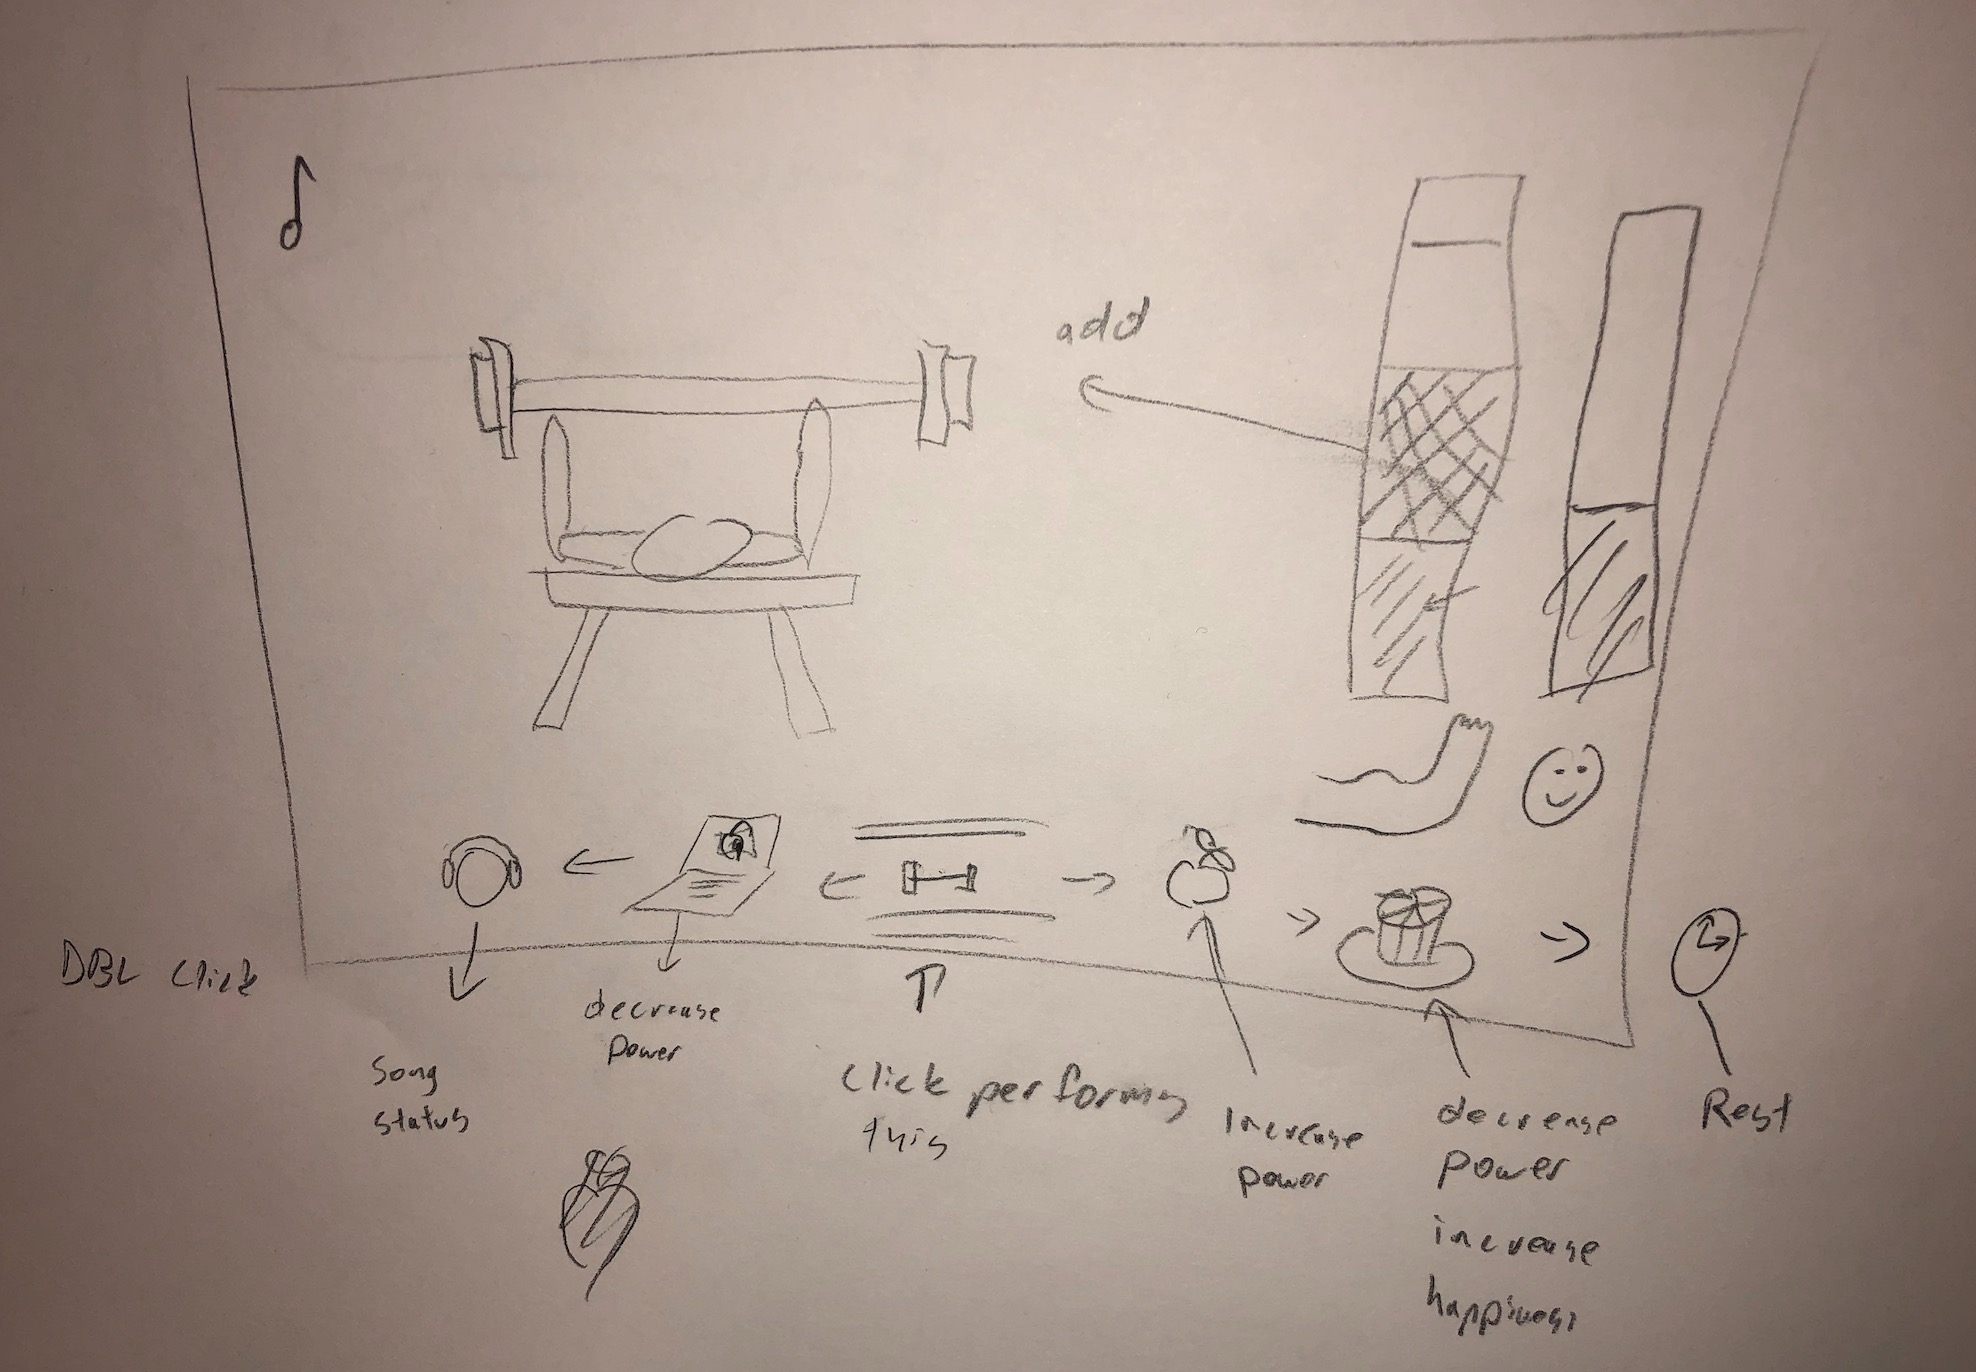 add
DBL Click
Song
status
decrease
Power
Click performs
this
Increase
power
decrease
power
increase
happiness
Rest